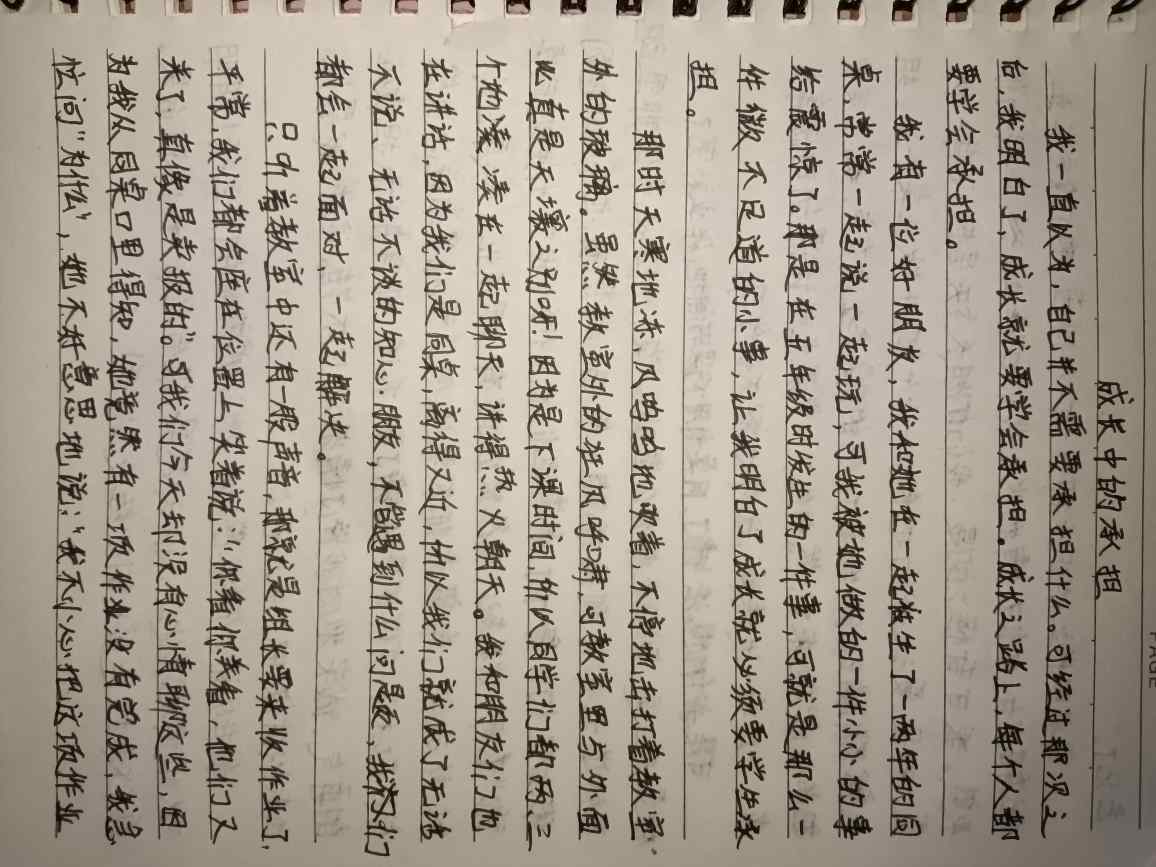 PAGE
成长中的承担
我一直以为,自己并不需要承担什么。可经过那次之
后,我明白了,成长就要学会承担。成长之路上,每个人都
要学会承担。
我有一位好朋友,我和她在一起被生了一两年的同
桌,常常一起说一起玩,可我被她做的一件小小的事
给震惊了。那是在五年级时发生的一件事,可就是那么一
件微不足道的小事,让我明白了成长就必须要学生承
担。
那时天寒地冻,风呜呜地吹着,不停地击打着教室
外的玻璃。虽然教室外的狂风呼啸,可教室里与外面
必直是天壤之别呀!因为是下课时间,所以同学们都两、三
个地凑凑在一起聊天,讲得热火朝天。我和朋友们也
在讲话,因为我们是同桌,离得又近,所以我们就成了无话
不说、无话不谈的知心朋友,不管遇到什么问题,我们
都会一起面对,一起解决。
只听着教室中还有一股声音,那就是组长要来收作业了,
平常,我们都会座在位置上笑着说:“你看你美看,他们又
来了,真像是卖报的”。可我们今天却没有心情聊这些,因
为我从同桌口里得知,她竟然有一项作业没有完成,我急
忙问“为什么”,她不好意思地说:“我不小心把这项作业